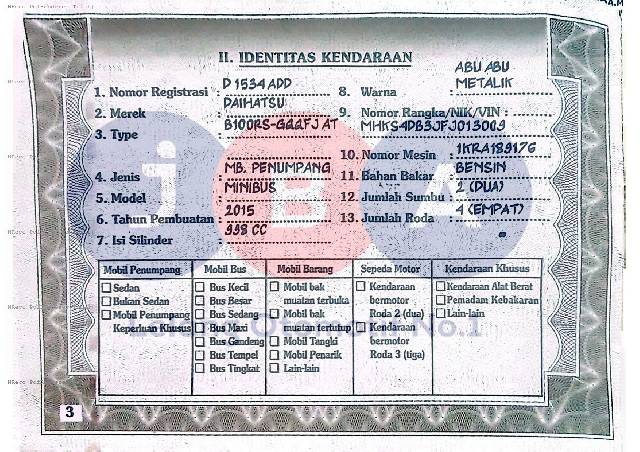 II. IDENTITAS KENDARAAN
1. Nomor Registrasi : D 1534 ADD
2. Merek : DAIHATSU
3. Type : B100RS-GQQFJ AT
4. Jenis : MB. PENUMPANG
5. Model : MINIBUS
6. Tahun Pembuatan : 2015
7. Isi Silinder : 998 CC
8. Warna : ABU ABU METALIK
9. Nomor Rangka/NIK/VIN :
MHKS4DB3JFJ013009
10. Nomor Mesin : 1KRA189176
11. Bahan Bakar : BENSIN
12. Jumlah Sumbu : 2 (DUA)
13. Jumlah Roda : 4 (EMPAT)
Mobil Penumpang
Sedan
Bukan Sedan
Mobil Penumpang
Keperluan Khusus
Mobil Bus
Bus Kecil
Bus Besar
Bus Sedang
Bus Maxi
Bus Gandeng
Bus Tempel
Bus Tingkat
Mobil Barang
Mobil bak
muatan terbuka
Mobil bak
muatan tertutup
Mobil Tangki
Mobil Penarik
Lain-lain
Sepeda Motor
Kendaraan
bermotor
Roda 2 (dua)
Kendaraan
bermotor
Roda 3 (tiga)
Kendaraan Khusus
Kendaraan Alat Berat
Pemadam Kebakaran
Lain-lain
JBA
No.1
3